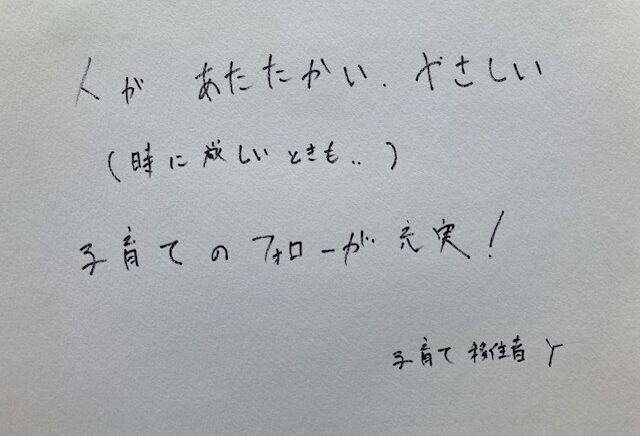 人が あたたかい. やさしい
(時に厳しいときも..)
子育てのフォローが充実!
子育て移住者 Y